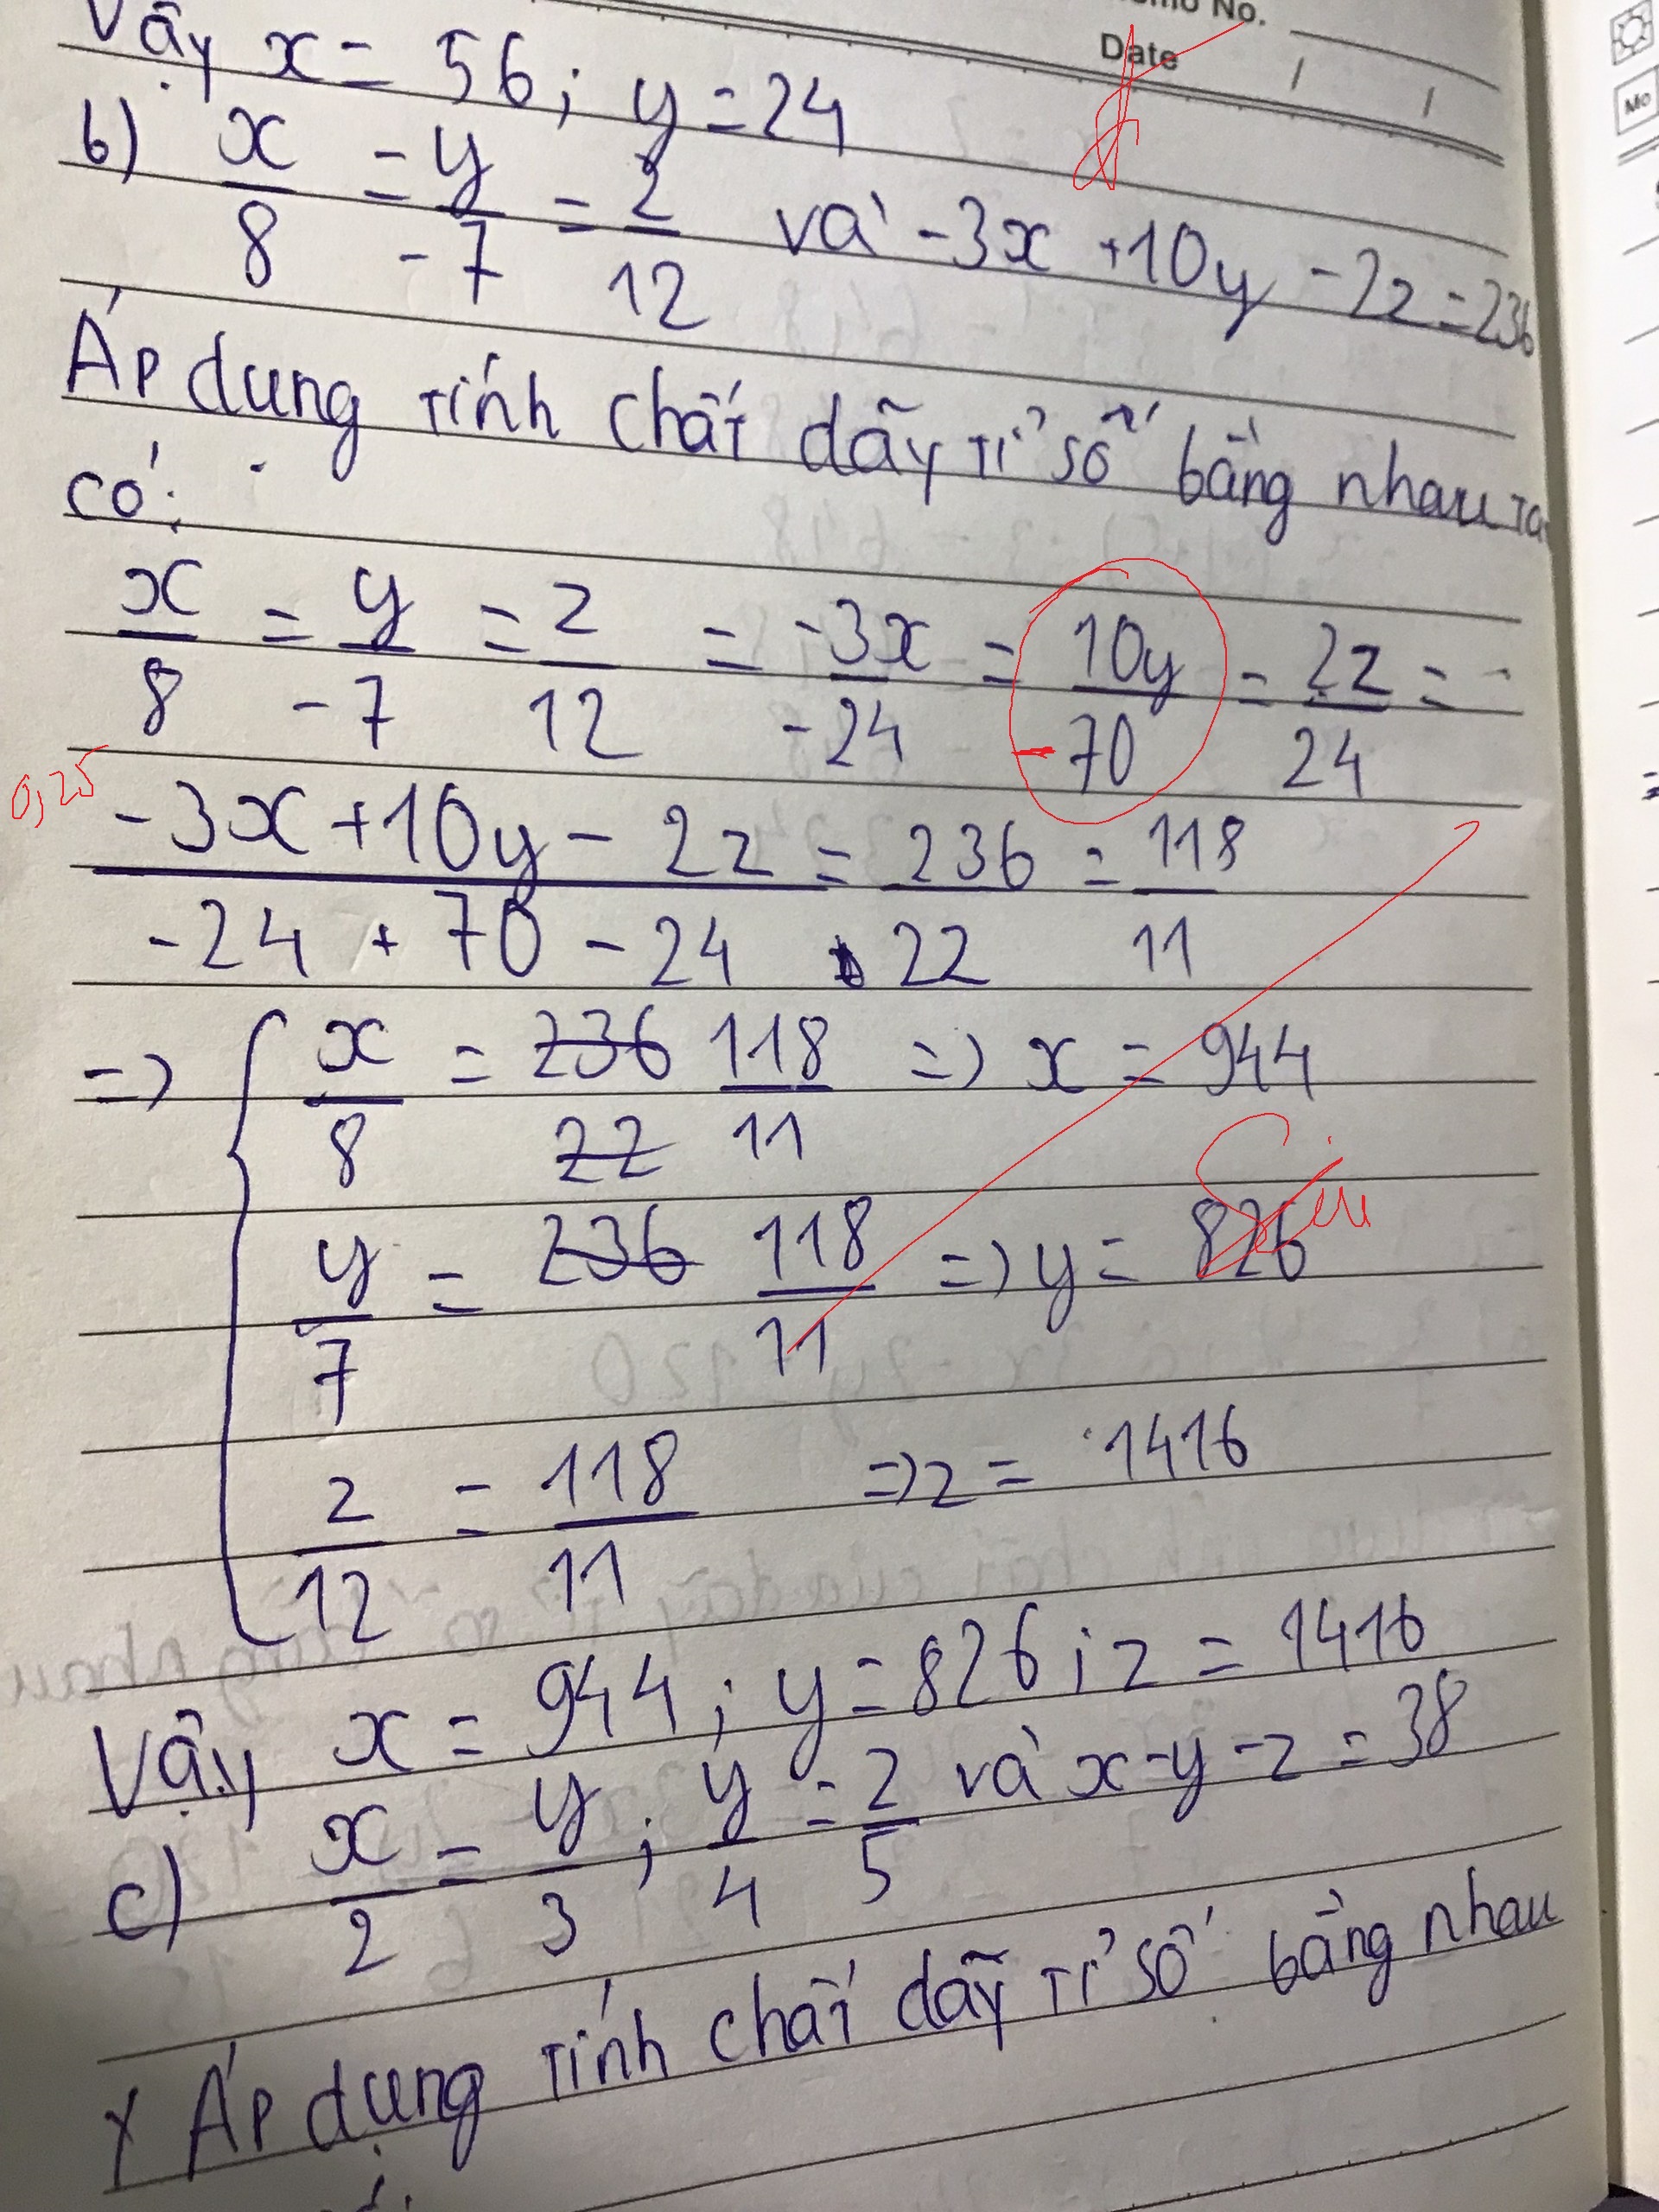 Memo No.
Date / /
Mo
Vậy x = 56; y = 24
b) x/8 = y/-7 = z/12 và -3x + 10y - 2z = 236
Áp dung tính chất dãy tỉ số bằng nhau ta
có:
x/8 = y/-7 = z/12 = -3x/-24 = 10y/-70 = 2z/24 =
0,25
-3x + 10y - 2z/-24 + 70 - 24 = 236/22 = 118/11
=> { x/8 = 236/22 118/11 => x = 944
Sai
y/7 = 236 118/11 => y = 826
z/12 = 118/11 => z = 1416
Vậy x = 944; y = 826; z = 1416
c) x/2 = y/3; y/4 = z/5 và x - y - z = 38
Áp dụng tính chất dãy tỉ số bằng nhau